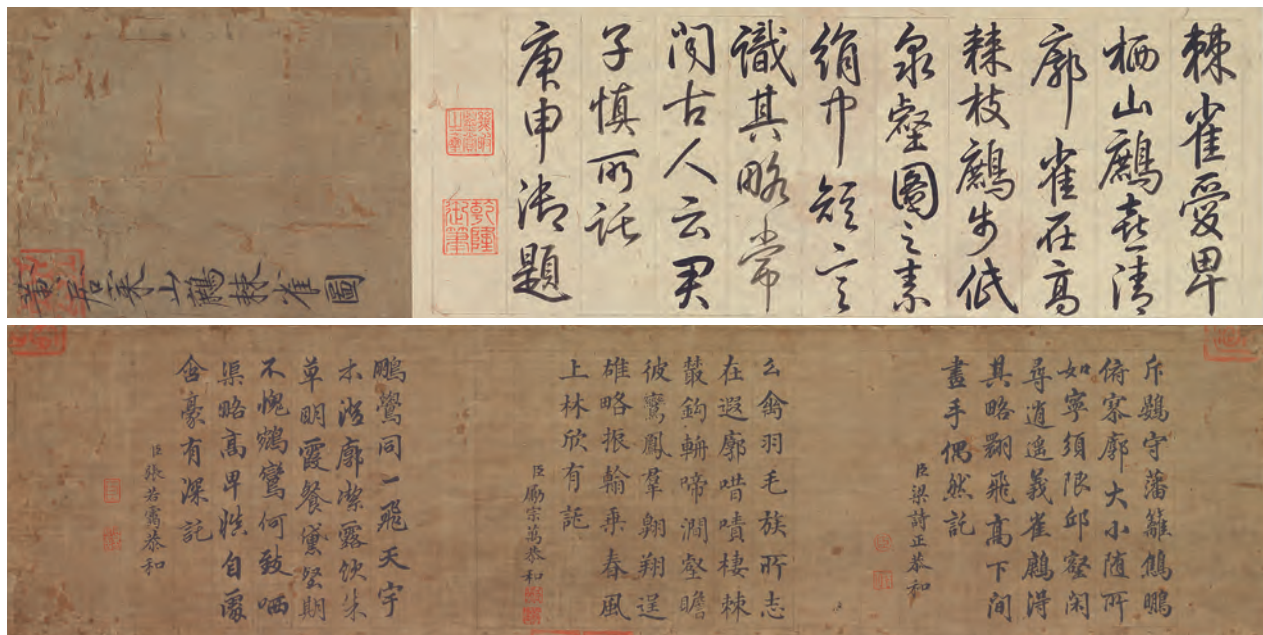 棘雀愛卑
栖山鷓喜清
廓雀在高
棘枝鷓步低
泉壑圖之素
絹中短言
識其略常
聞古人云君
子慎所託
庚申御題
乾隆御筆
黃居寀山鷓棘雀圖
斥鷃守藩籬鵾鵬
俯寥廓大小随所
如寧須限邱壑閑
尋逍遙義雀鷓得
其略翾飛高下間
畫手偶然託
臣梁詩正恭和
幺禽羽毛族所志
在遐廓唶嘖棲棘
叢鉤輈啼澗壑瞻
彼鸞鳳羣翱翔逞
雄略振翰乘春風
上林欣有託
臣勵宗萬恭和
鵬鷽同一飛天宇
本澄廓潔露飲朱
草明霞餐黛壑期
不愧鵷鸞何致哂
渠略高卑自處
含豪有深託
臣張若靄恭和